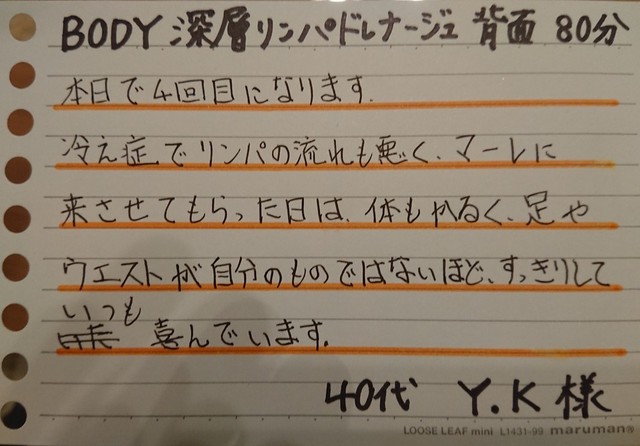 BODY 深層リンパドレナージュ 背面 80分
本日で4回目になります.
冷え症でリンパの流れも悪く、マーレに
来させてもらった日は、体もかるく、足や
ウエストが自分のものではないほど、すっきりして
いつも
喜んでいます.
40代 Y.K 様
LOOSE LEAF mini L1431-99 maruman